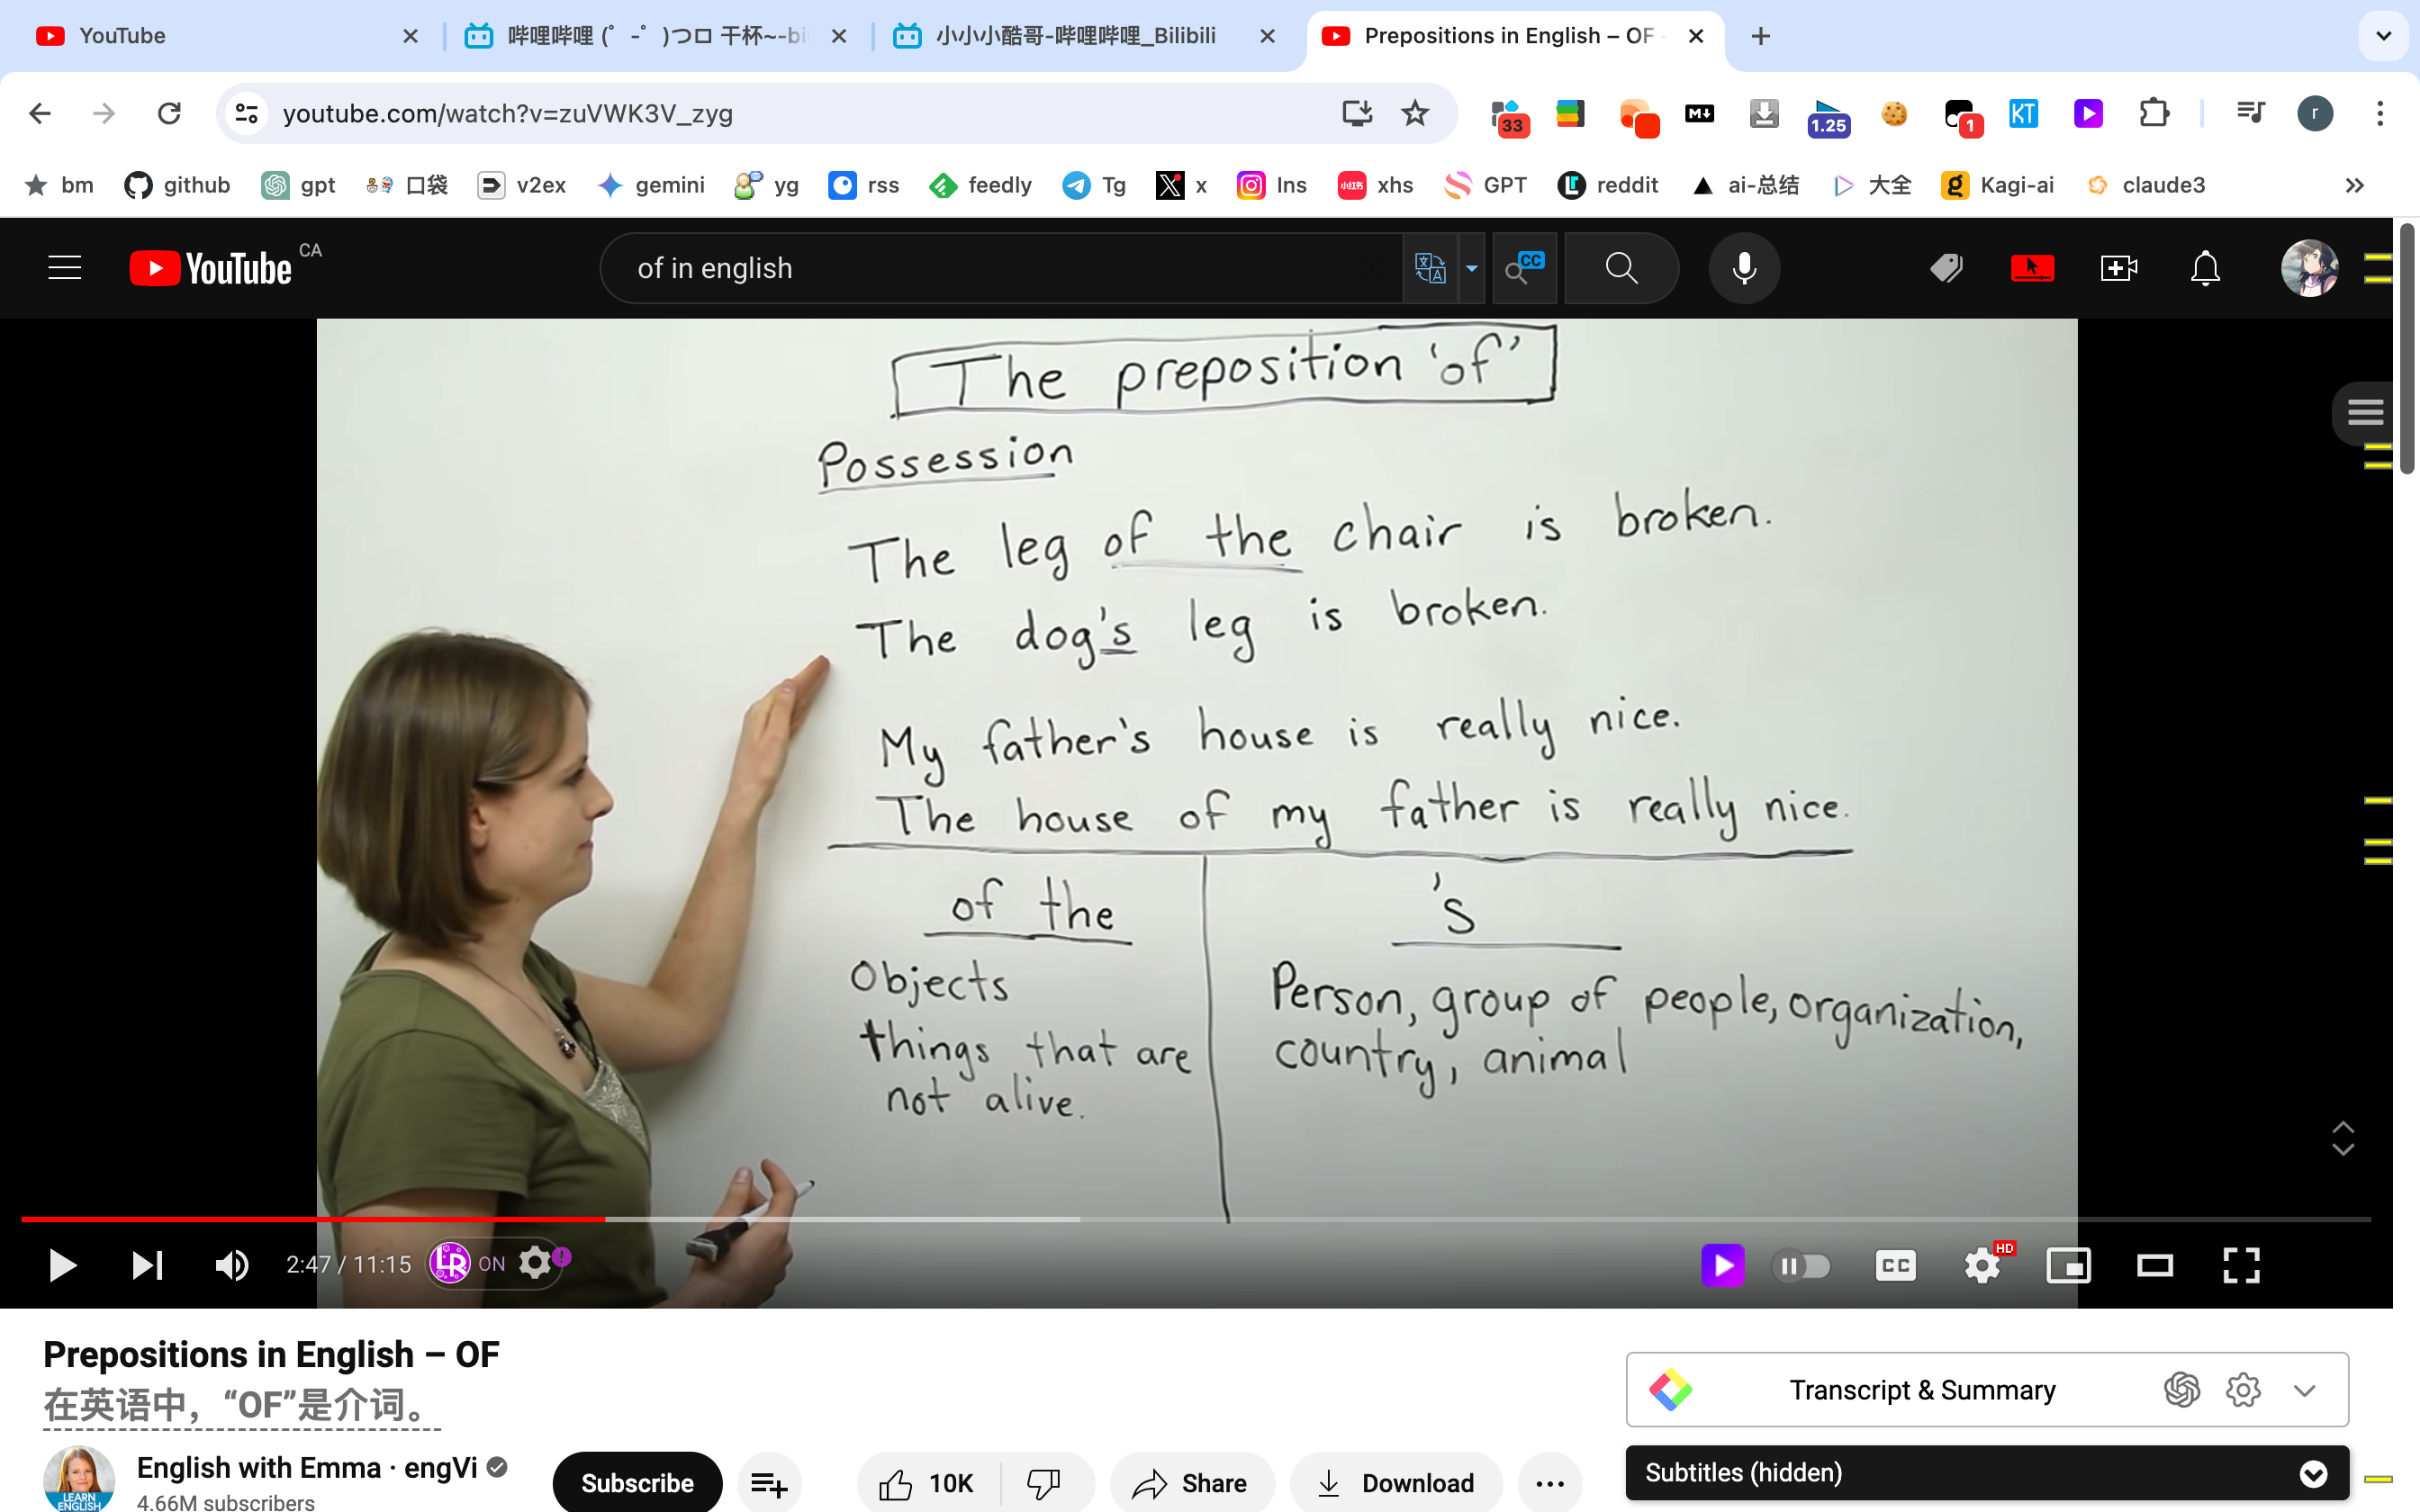 YouTube
哔哩哔哩 (゜-゜)つロ 干杯~-bi
小小小酷哥-哔哩哔哩_Bilibili
Prepositions in English – OF
youtube.com/watch?v=zuVWK3V_zyg
33
M
1.25
1
KT
r
bm
github
gpt
口袋
v2ex
gemini
yg
rss
feedly
Tg
x
Ins
小红书
xhs
GPT
reddit
ai-总结
大全
g
Kagi-ai
claude3
YouTube CA
of in english
文
A
CC
The preposition 'of'
Possession
The leg of the chair is broken.
The dog's leg is broken.
My father's house is really nice.
The house of my father is really nice.
of the
's
Objects
things that are
not alive.
Person, group of people, organization,
country, animal
2:47 / 11:15
LR ON
!
CC
HD
Prepositions in English – OF
在英语中，“OF”是介词。
LEARN
ENGLISH
English with Emma · engVi
4.66M subscribers
Subscribe
10K
Share
Download
Transcript & Summary
Subtitles (hidden)